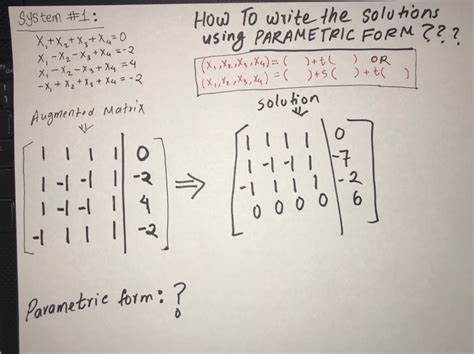 System #1:
X₁+X₂+X₃+X₄=0
X₁-X₂-X₃+X₄=-2
X₁-X₂-X₃+X₄=4
-X₁+X₂+X₃+X₄=-2
HOW TO write the Solutions
using PARAMETRIC FORM ???
(X₁,X₂,X₃,X₄)=( )+t( ) OR
(X₁,X₂,X₃,X₄)=( )+S( )+t( )
Augmented Matrix
1 1 1 1 0
1 -1 -1 1 -2
1 -1 -1 1 4
-1 1 1 1 -2
⇒
Solution
1 1 1 1 0
1 -1 -1 1 -7
-1 1 1 1 -2
0 0 0 0 6
Parametric form: ?